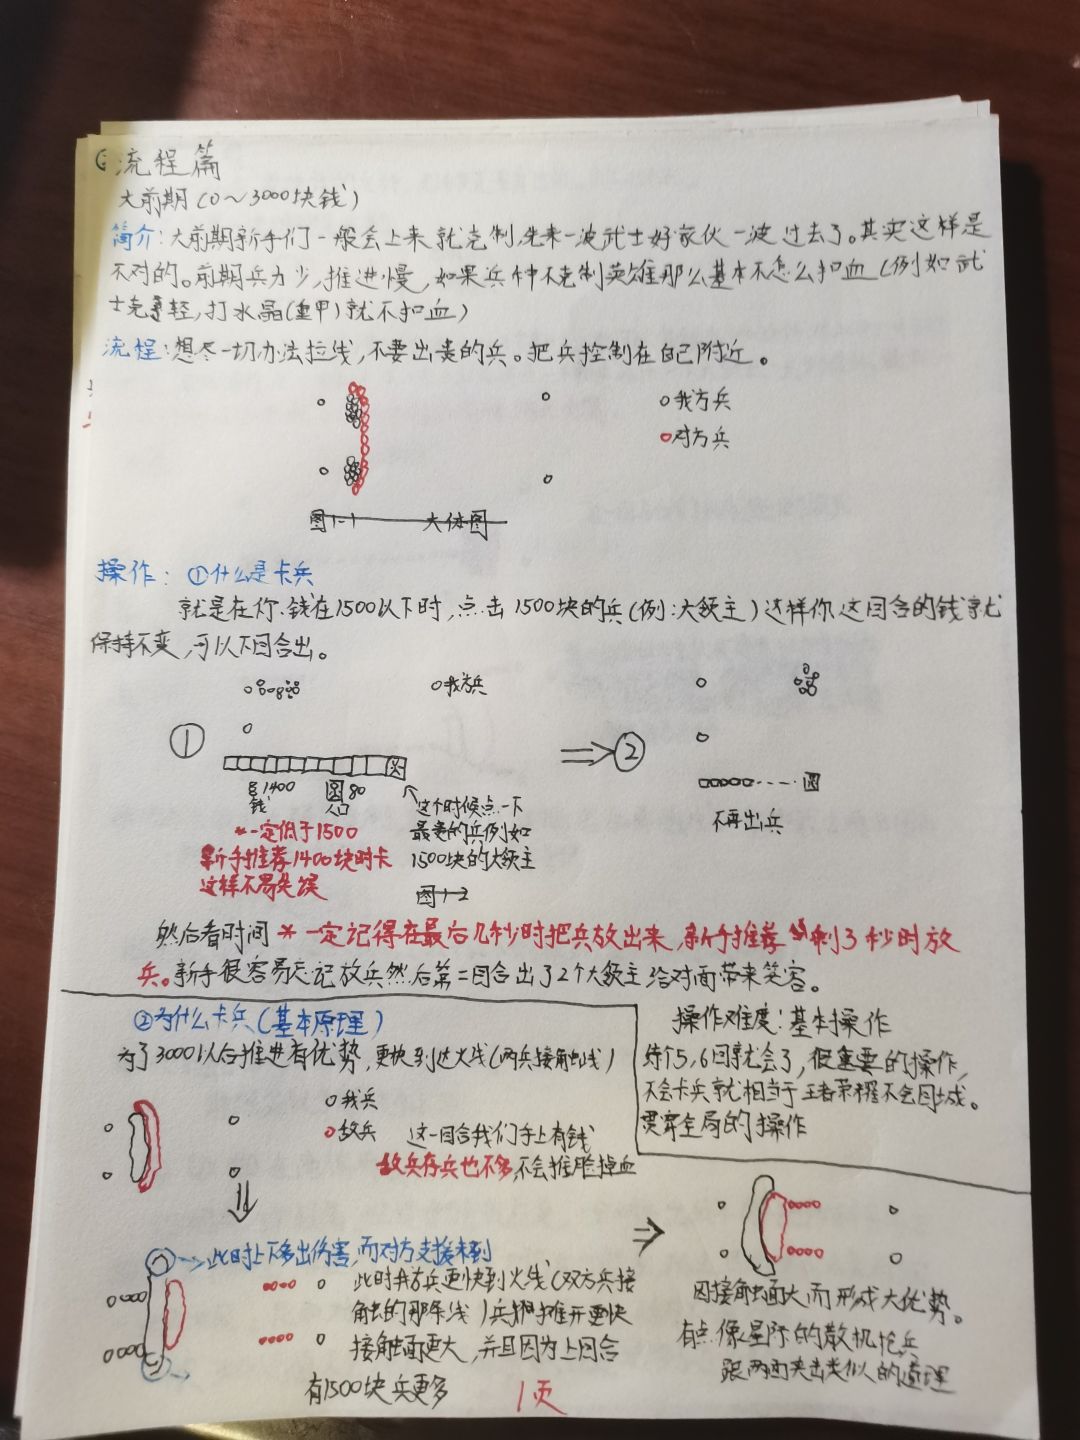 流程篇
大前期(0～3000块钱)
简介:大前期新手们一般会上来就克制,先来一波武士好家伙一波过去了。其实这样是
不对的。前期兵力少,推进慢,如果兵种不克制英雄那么基本不怎么扣血(例如武
士克轻,打水晶(重甲)就不扣血)
流程:想尽一切办法拉线,不要出贵的兵。把兵控制在自己附近。
我方兵
对方兵
图1-1 大体图
操作: ①什么是卡兵
就是在你钱在1500以下时,点击1500块的兵(例:大领主)这样你这回合的钱就
保持不变,可以下回合出。
我方兵
①
②
1400
钱
80
人口
这个时候点一下
最贵的兵例如
1500块的大领主
*一定低于1500
新手推荐1400块时卡
这样不易失误
图1-2
不再出兵
然后看时间*一定记得在最后几秒时把兵放出来,新手推荐剩3秒时放
兵。新手很容易忘记放兵然后第二回合出了2个大领主给对面带来笑容。
②为什么卡兵(基本原理)
为了3000以后推进有优势,更快到达火线(两兵接触线)
我兵
敌兵
这一回合我们手上有钱
敌兵存兵也不多,不会推脸掉血
操作难度:基本操作
练个5,6回就会了,很重要的操作,
不会卡兵就相当于王者荣耀不会回城。
贯穿全局的操作
此时上下多出伤害,而对方支援未到
此时我方兵更快到火线(双方兵接
触的那条线)兵摊开更快
接触面更大,并且因为上回合
有1500块兵更多
因接触面大而形成大优势。
有点像星际的散机枪兵
跟两面夹击类似的道理
1页